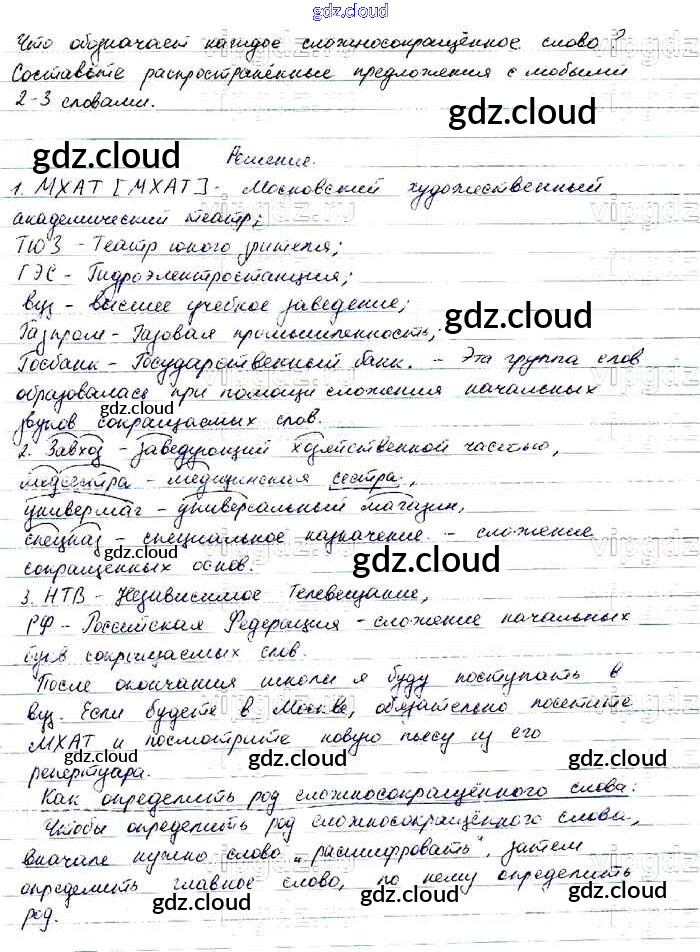 gdz.cloud
Что обозначает каждое сложносокращённое слово?
Составьте распространённые предложения с любыми
2-3 словами.
gdz.cloud
gdz.cloud
Решение.
1. МХАТ [МХАТ] - Московский художественный
академический театр;
ТЮЗ - Театр юного зрителя;
ГЭС - Гидроэлектростанция;
вуз - высшее учебное заведение;
Газпром - Газовая промышленность;
gdz.cloud
Госбанк - Государственный банк. - Эта группа слов
образовалась при помощи сложения начальных
gdz.cloud
звуков сокращаемых слов.
2. Завхоз - заведующий хозяйственной частью,
медсестра - медицинская сестра,
универмаг - универсальный магазин,
спецназ - специальное назначение. - сложение
gdz.cloud
gdz.cloud
сокращённых основ.
3. НТВ - Независимое Телевещание,
РФ - Российская Федерация - сложение начальных
букв сокращаемых слов.
После окончания школы я буду поступать в
вуз. Если будете в Москве, обязательно посетите
МХАТ и посмотрите новую пьесу из его
gdz.cloud
gdz.cloud
gdz.cloud
репертуара.
Как определить род сложносокращённого слова:
Чтобы определить род сложносокращённого слова,
вначале нужно слово „расшифровать", затем
gdz.cloud
gdz.cloud
определить главное слово, по нему определить
gdz.cloud
gdz.cloud
gdz.cloud
род.